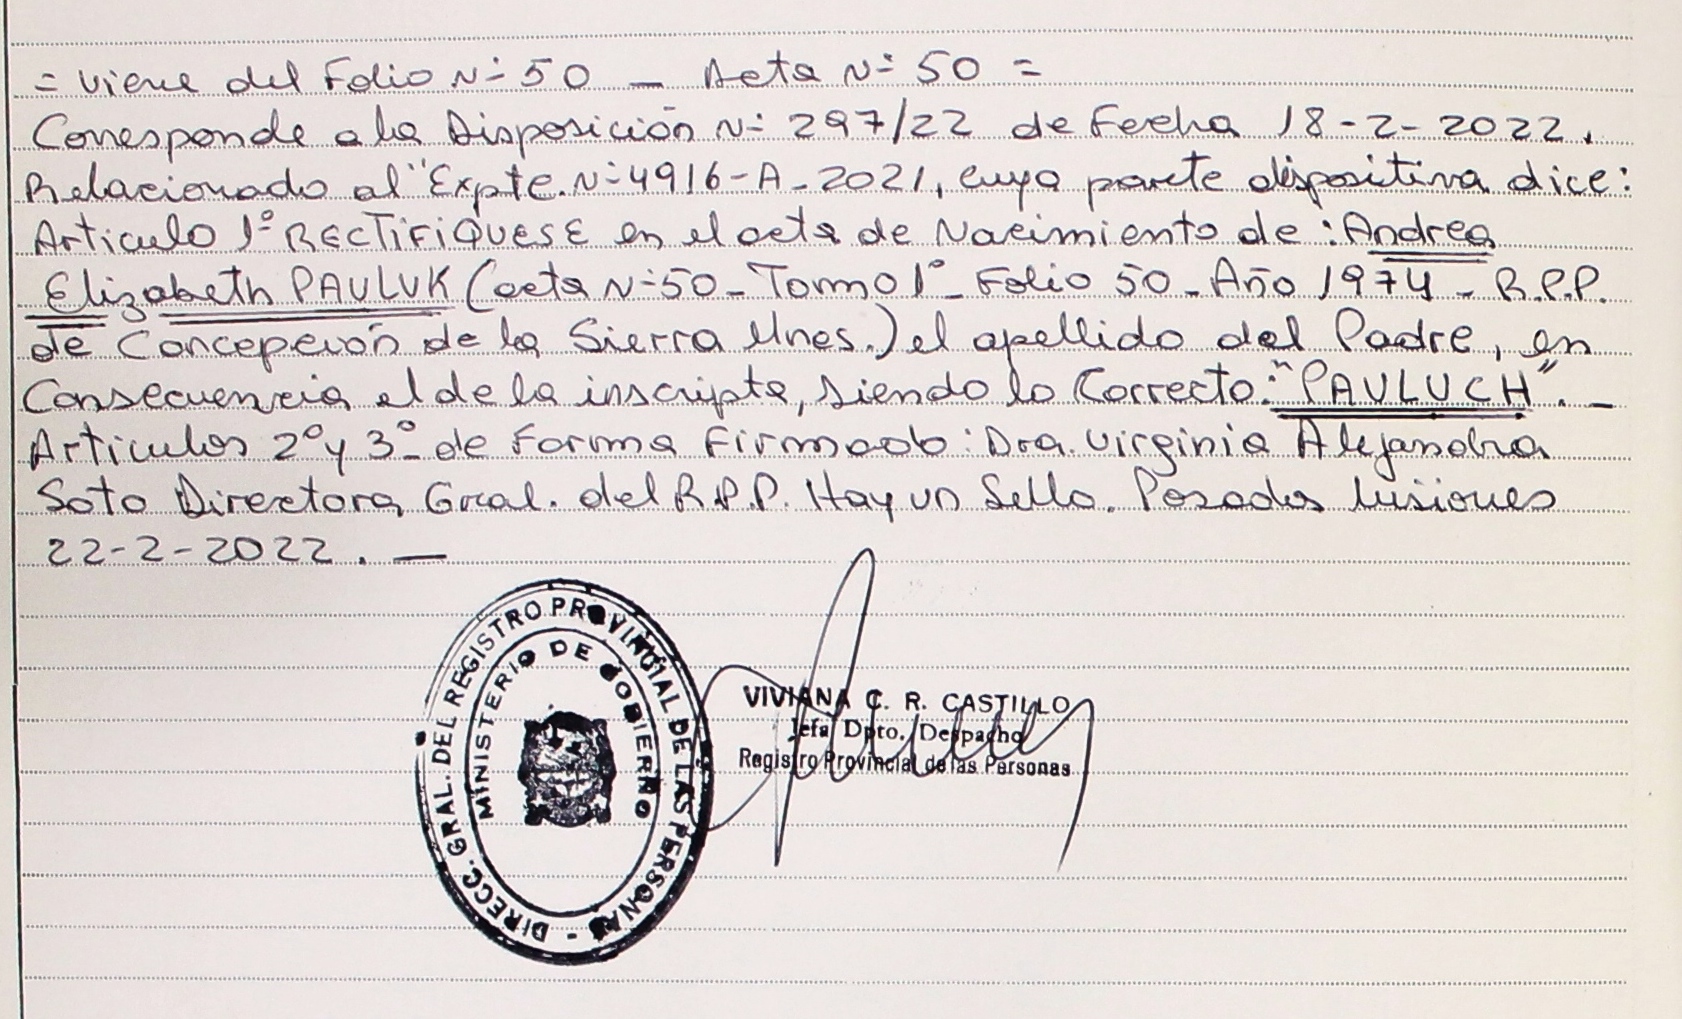 = Viene del Folio N° 50 — Acta N° 50 =
Corresponde a la Disposición N° 297/22 de Fecha 18-2-2022.
Relacionado al "Expte. N° 4916-A-2021, cuya parte dispositiva dice:
Articulo 1° RECTIFIQUESE en el acta de Nacimiento de: Andrea
Elizabeth PAULUK (acta N° 50 - Tomo 1° - Folio 50 - Año 1974 - R.P.P.
de Concepción de la Sierra Mnes.) el apellido del Padre, en
Consecuencia el de la inscripta, siendo lo Correcto: "PAULUCH". —
Articulos 2° y 3° - de Forma Firmado: Dra. Virginia Alejandra
Soto Directora Gral. del R.P.P. Hay un Sello. Posadas Misiones
22-2-2022. —
DIRECC. GRAL. DEL REGISTRO PROVINCIAL DE LAS PERSONAS -
MINISTERIO DE GOBIERNO
VIVIANA C. R. CASTILLO
Jefa Dpto. Despacho
Registro Provincial de las Personas